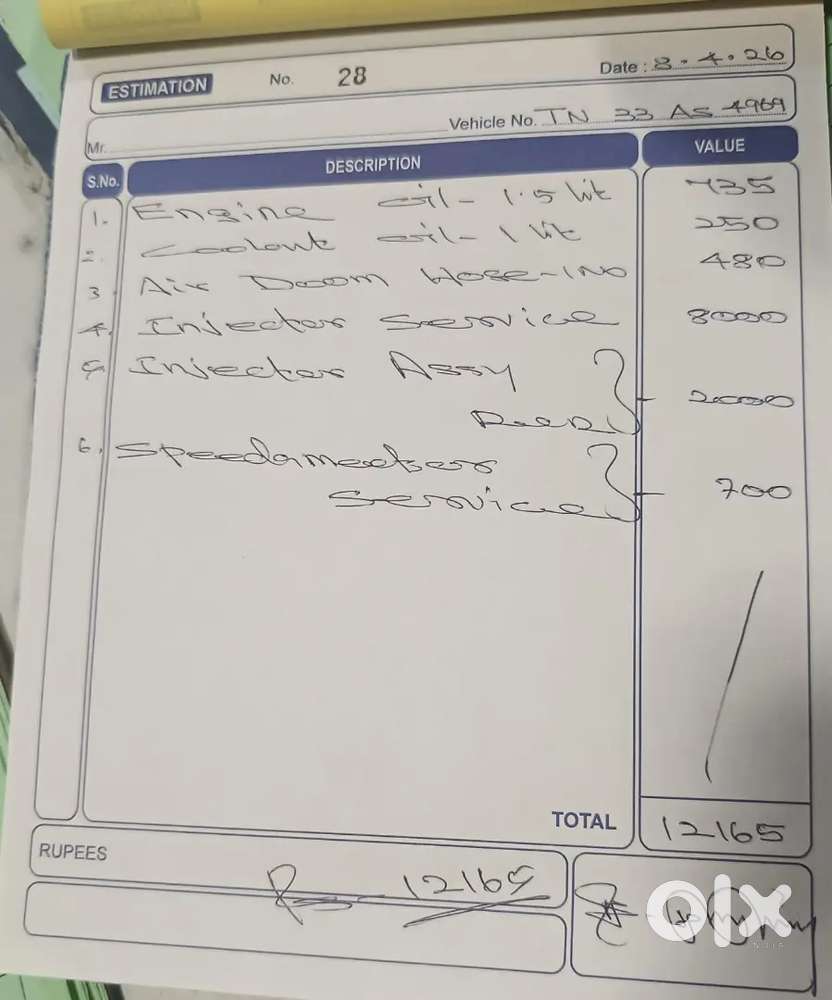 ESTIMATION No. 28 Date : 8.4.26
Mr. Vehicle No. TN 33 AS 4969
S.No. DESCRIPTION VALUE
1. Engine oil - 1.5 lit 735
2. Coolant oil - 1 lit 250
3 Air Doom Hose - 1No 480
4. Injector Service 8000
5. Injector Assy
2000
6. Speedameeter
Service 700
TOTAL 12165
RUPEES
Rs. 12165
olx
INDIA